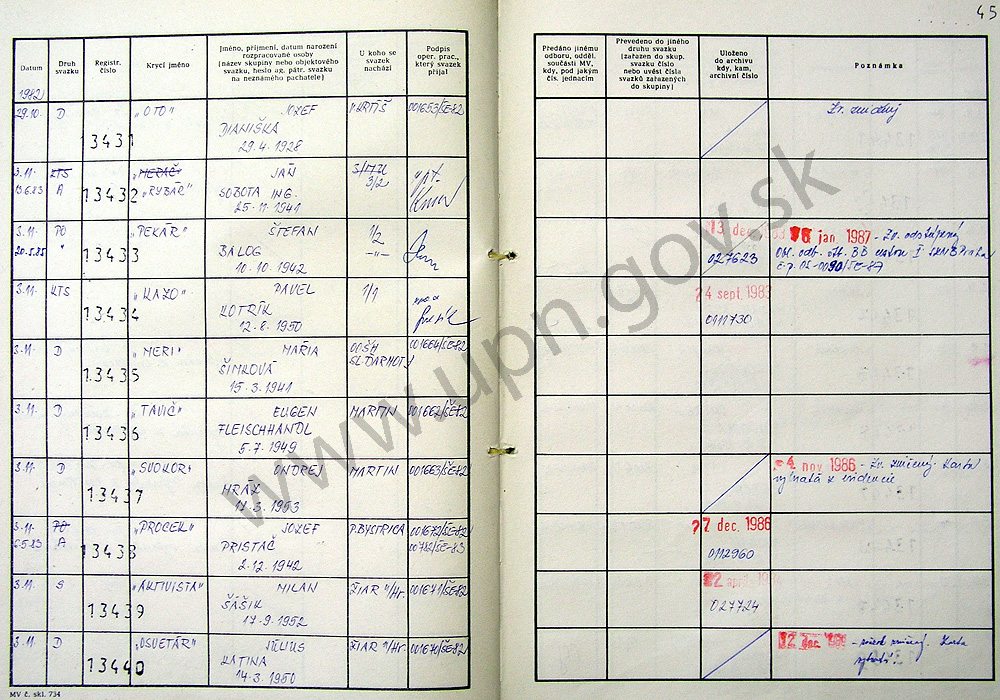 45
Datum
Druh svazku
Registr. číslo
Krycí jméno
Jméno, příjmení, datum narození rozpracované osoby (název skupiny nebo objektového svazku, heslo ag. pátr. svazku na neznámého pachatele)
U koho se svazek nachází
Podpis oper. prac., který svazek přijal
Předáno jinému odboru, odděl. součásti MV, kdy, pod jakým čís. jednacím
Převedeno do jiného druhu svazku (zařazen do skup. svazku číslo nebo uvést čísla svazků zařazených do skupiny)
Uloženo do archivu kdy, kam, archivní číslo
Poznámka
1982
29.10. D 13431 "OTO" JOZEF
DIANIŠKA
29.4.1928
001653/ŠE-82
Zv. zničený
3.11. KTS 13432 "MERAČ" JÁN
13.6.83 A "RYBÁR" SOBOTA ING.
25.11.1941
3/2
3.11. PO 13433 "PEKÁR" ŠTEFAN 1/2
20.5.85 " BALOG -"-
10.10.1942
13 dec.
027623
jan 1987 - Zv. odstúpený
3.11. KTS 13434 "KAZO" PAVEL 1/1
KOTRÍK
12.8.1950
24 sept. 1983
0111730
3.11. D 13435 "MERI" MÁRIA
ŠIMKOVÁ
15.3.1941
001664/ŠE-82
3.11. D 13436 "TAVIČ" EUGEN MARTIN 001662/ŠE-82
FLEISCHHANDL
5.7.1949
3.11. D 13437 "SVOKOR" ONDREJ MARTIN 001663/ŠE-82
MRÁZ
17.3.1953
4 nov 1986 - Zv. zničený. Karta
vybratá z evidencie
3.11. PO 13438 "PROCEK" JOZEF P. BYSTRICA 001672/ŠE-82
6.5.83 A PRISTAČ
2.12.1942
27 dec. 1986
0112960
3.11. S 13439 "AKTIVISTA" MILAN ŽIAR n/Hr. 001671/ŠE-82
ŠÁŠIK
17.9.1952
22 apríl
027724
3.11. D 13440 "OSVETÁR" JÚLIUS ŽIAR n/Hr. 001670/ŠE-82
KATINA
14.3.1950
12 dec. - zničený. Karta
vybratá.
MV č. skl. 734
www.upn.gov.sk